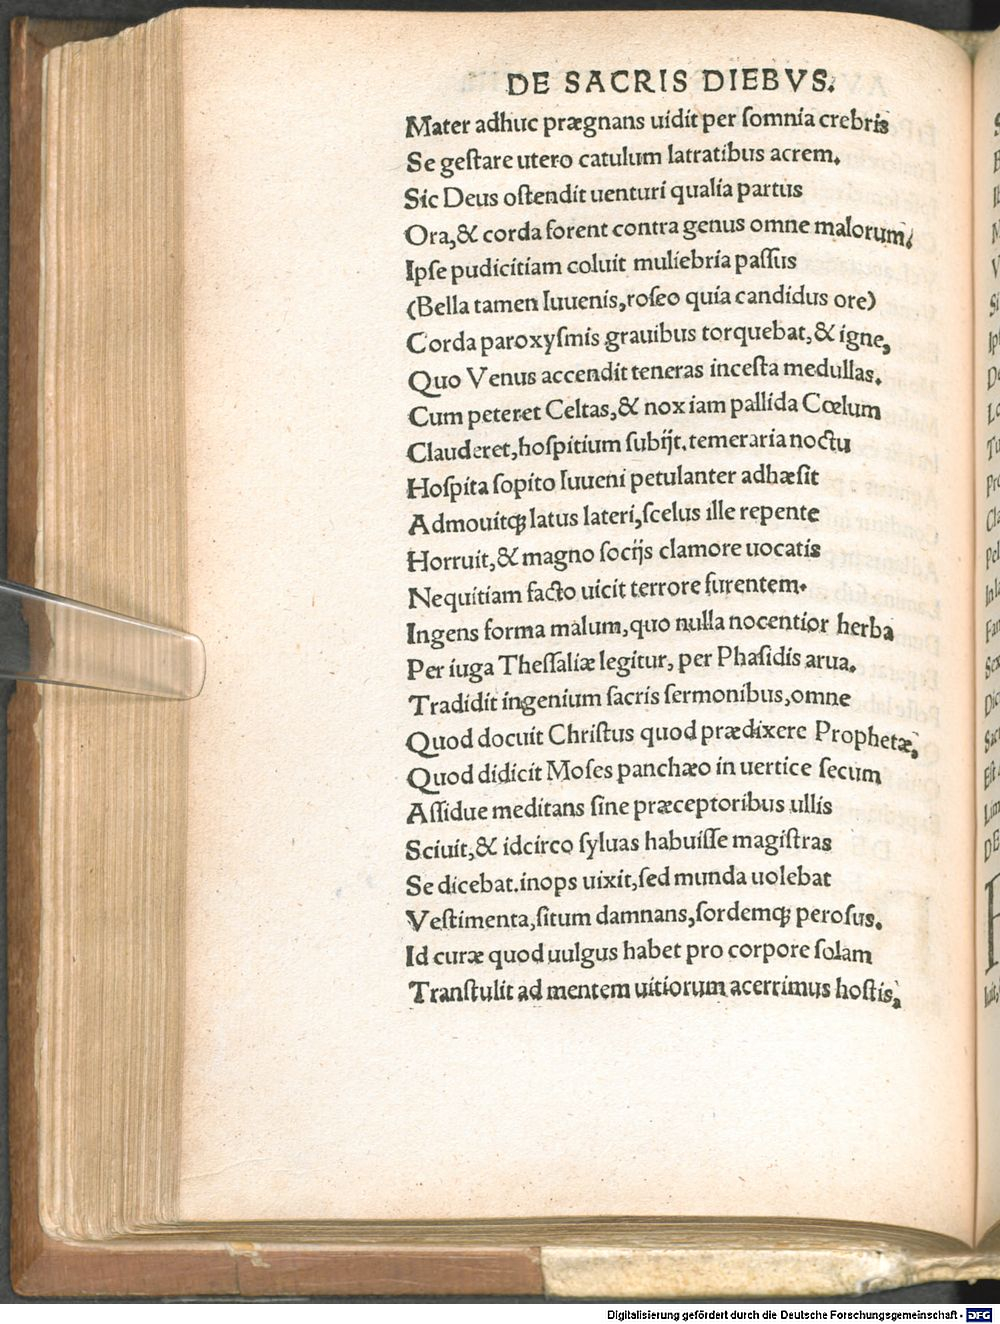 DE SACRIS DIEBVS.
Mater adhuc prægnans uidit per ſomnia crebris
Se geſtare utero catulum latratibus acrem.
Sic Deus oſtendit uenturi qualia partus
Ora,& corda forent contra genus omne malorum.
Ipſe pudicitiam coluit muliebria paſſus
(Bella tamen Iuuenis,roſeo quia candidus ore)
Corda paroxyſmis grauibus torquebat,& igne,
Quo Venus accendit teneras inceſta medullas.
Cum peteret Celtas,& nox iam pallida Cœlum
Clauderet,hoſpitium ſubijt.temeraria noctu
Hoſpita ſopito Iuueni petulanter adhæſit
Admouitꝗ latus lateri,ſcelus ille repente
Horruit,& magno ſocijs clamore uocatis
Nequitiam facto uicit terrore furentem.
Ingens forma malum,quo nulla nocentior herba
Per iuga Theſſaliæ legitur, per Phaſidis arua.
Tradidit ingenium ſacris ſermonibus,omne
Quod docuit Chriſtus quod prædixere Prophetæ,
Quod didicit Moſes panchæo in uertice ſecum
Aſſidue meditans ſine præceptoribus ullis
Sciuit,& idcirco ſyluas habuiſſe magiſtras
Se dicebat.inops uixit,ſed munda uolebat
Veſtimenta,ſitum damnans,ſordemꝗ peroſus.
Id curæ quod uulgus habet pro corpore ſolam
Tranſtulit ad mentem uitiorum acerrimus hoſtis,
Digitalisierung gefördert durch die Deutsche Forschungsgemeinschaft - DFG